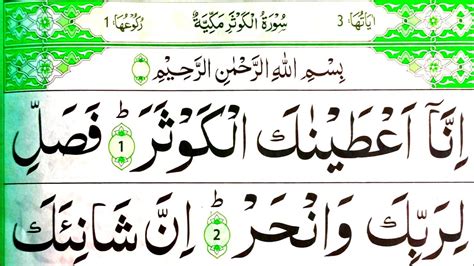 اٰيَاتُهَا: 3 سُوْرَةُ الْكَوْثَرِ مَكِّيَّةٌ رُكُوْعُهَا: 1
بِسْمِ اللّٰهِ الرَّحْمٰنِ الرَّحِيْمِ
اِنَّاۤ اَعْطَيْنٰكَ الْكَوْثَرَ ؕ 1 فَصَلِّ
لِرَبِّكَ وَانْحَرْ ؕ 2 اِنَّ شَانِئَكَ